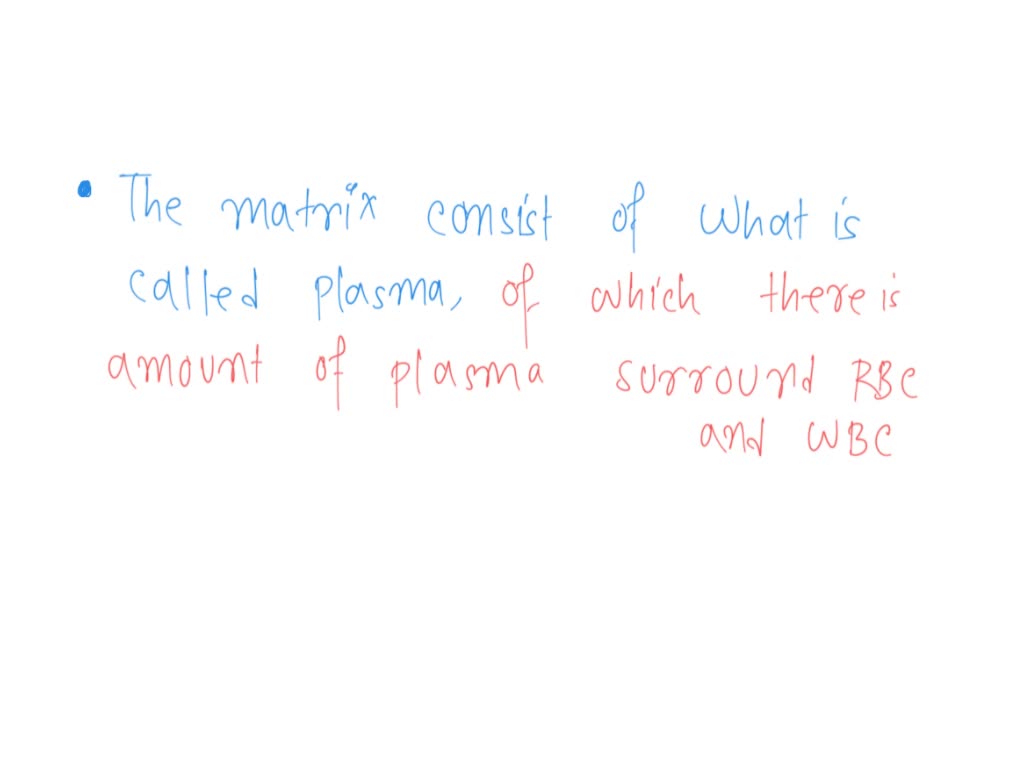 • The matrix consist of What is
called plasma, of which there is
amount of plasma surround RBC
and WBC